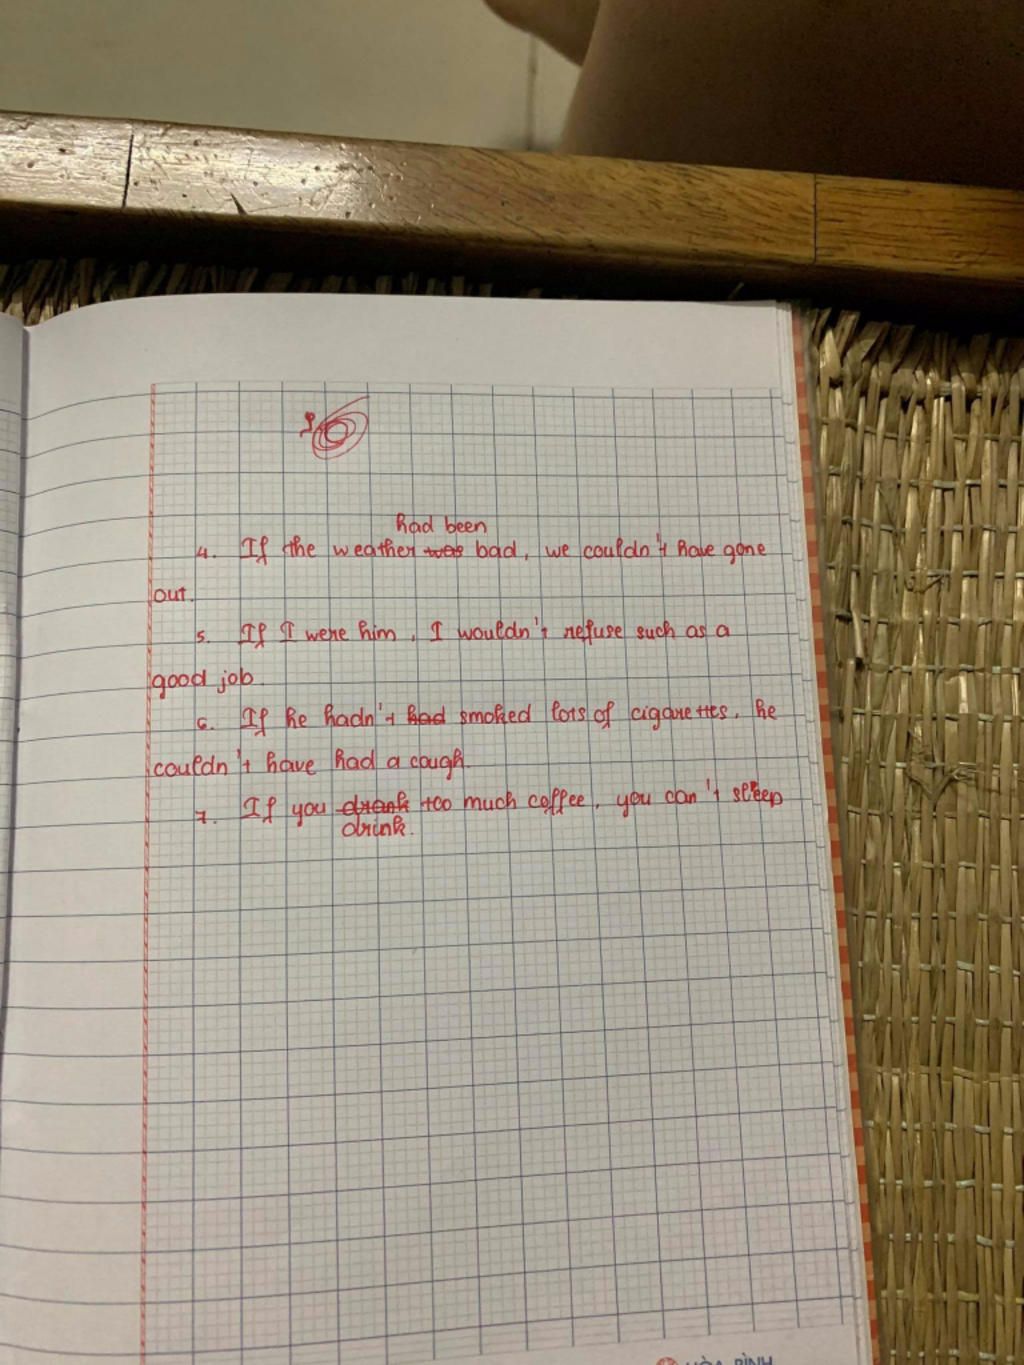 had been
4. If the weather was bad, we couldn't have gone
out.
5. If I were him, I wouldn't refuse such as a
good job
6. If he hadn't had smoked lots of cigarettes, he
couldn't have had a cough.
7. If you drank too much coffee, you can't sleep
drink.
HÒA BÌNH